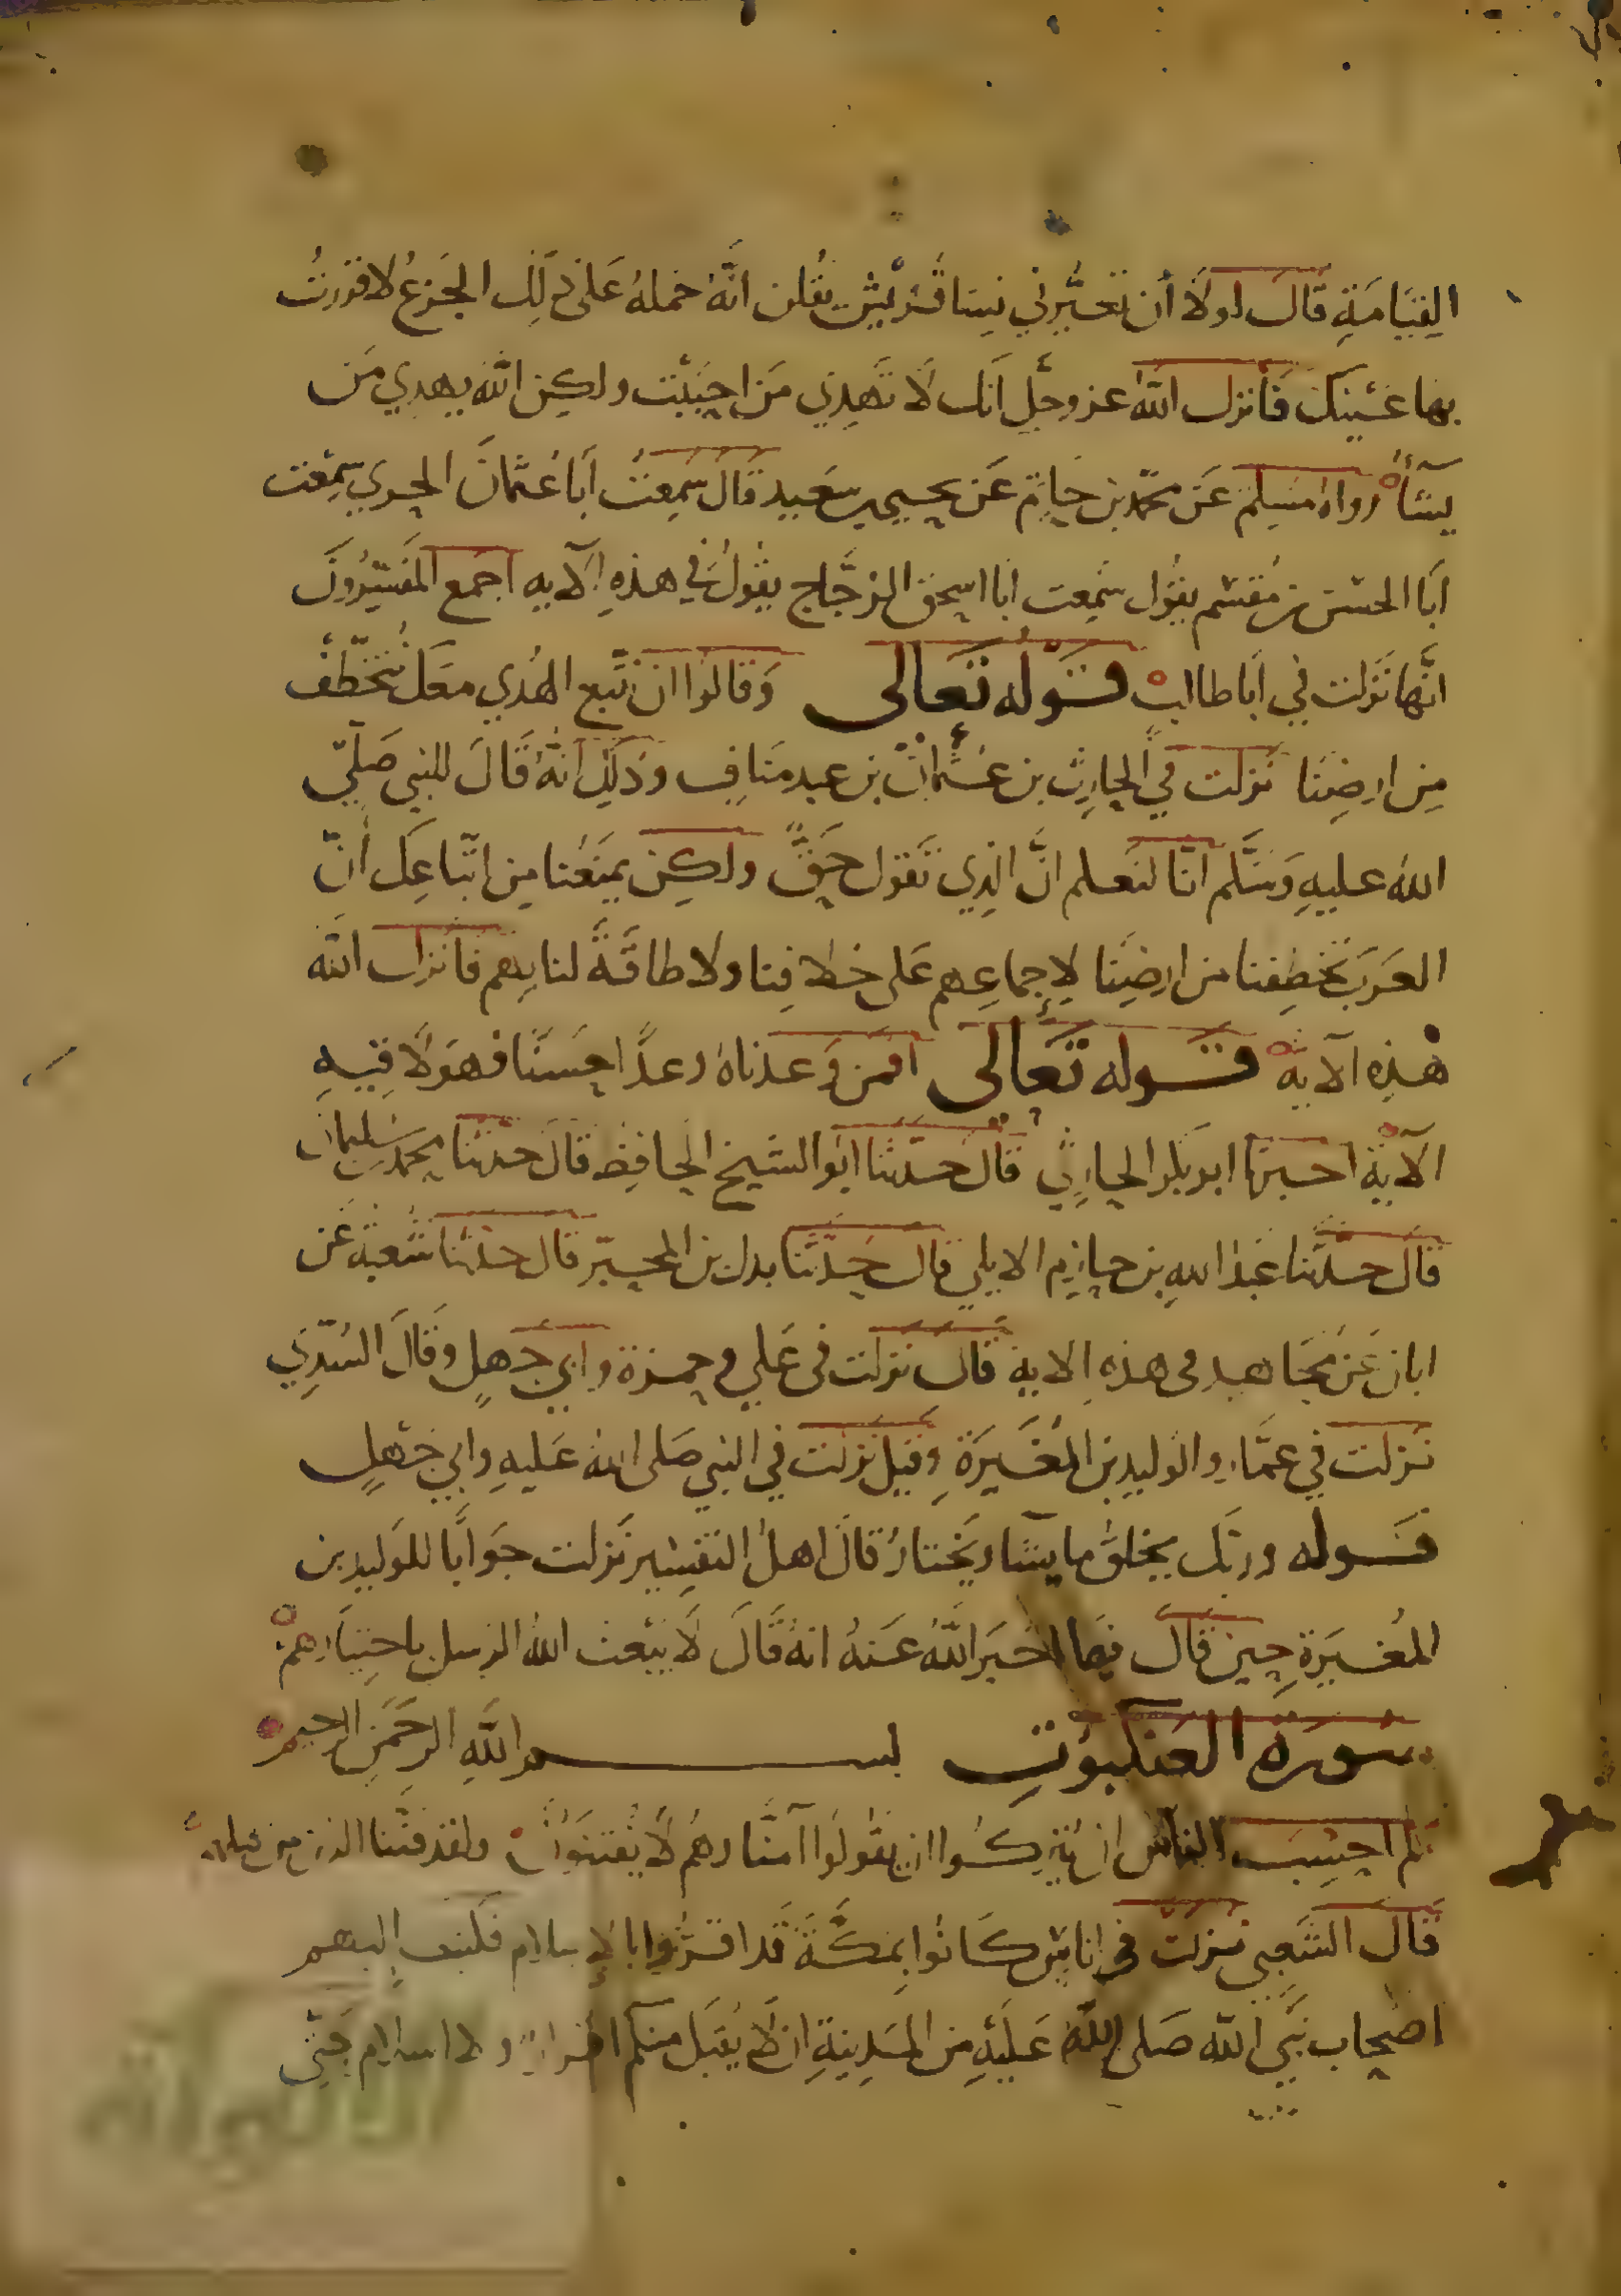 القيامة قال لولا أن تعيرني نسا قريش يقلن انه حمله على ذلك الجزع لاقررت
بها عينك فأنزل الله عز وجل انك لا تهدي من احببت ولكن الله يهدي من
يشأ رواه مسلم عن محمد بن حاتم عن يحيى بن سعيد قال سمعت أبا عثمان الحيري سمعت
أبا الحسن بن مقسم يقول سمعت ابا اسحق الزجاج يقول في هذه الآيه اجمع المفسرون
انها نزلت في ابا طالب قوله تعالى وقالوا ان نتبع الهدي معك نتخطف
من ارضنا نزلت في الحارث بن عثمان بن عبد مناف وذلك انه قال للنبي صلى
الله عليه وسلم انا لنعلم ان الذي تقول حق ولكن يمنعنا من اتباعك أن
العرب تخطفنا من ارضنا لإجماعهم على خطافنا ولا طاقة لنا بهم فأنزل الله
هذه الآيه قوله تعالى افمن وعدناه وعدا حسنا فهو لاقيه
الآية اخبرنا ابو بكر الحارثي قال حدثنا ابو الشيخ الحافظ قال حدثنا محمد بن سليمان
قال حدثنا عبد الله بن حازم الايلي قال حدثنا بدل بن المحبر قال حدثنا شعبة عن
ابان عن مجاهد في هذه الاية قال نزلت في علي وحمزة وابي جهل وقال السدي
نزلت في عمار والوليد بن المغيرة وقيل نزلت في النبي صلى الله عليه وابي جهل
قوله وربك يخلق ما يشا ويختار قال اهل التفسير نزلت جوابا للوليد بن
المغيرة حين قال فيما اخبر الله عنه انه قال لا يبعث الله الرسل باختيارهم
سورة العنكبوت بسم الله الرحمن الرحيم
الم احسب الناس ان يتركوا ان يقولوا آمنا وهم لا يفتنون ولقد فتنا الذين من قبلهم
قال الشعبي نزلت في اناس كانوا بمكة قد اقروا بالإسلام فكتب إليهم
اصحاب نبي الله صلى الله عليه من المدينة انه لا يقبل منكم اقرار ولا اسلام حتى